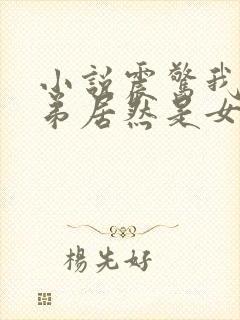 小説震驚我
弟居然是女
楊先好